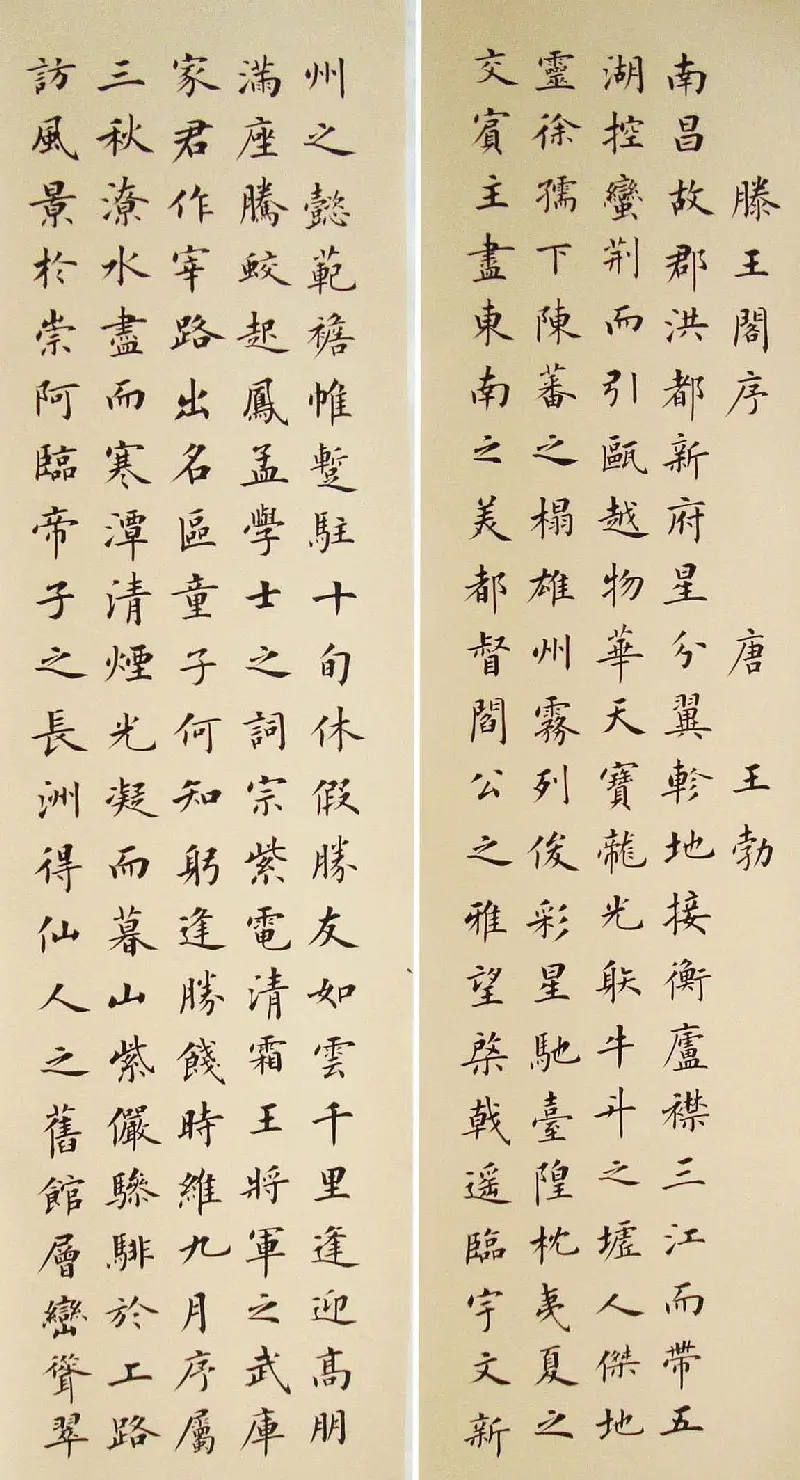 滕王閣序 唐 王勃
南昌故郡洪都新府星分翼軫地接衡廬襟三江而帶五
湖控蠻荆而引甌越物華天寶龍光䠶牛斗之墟人傑地
靈徐孺下陳蕃之榻雄州霧列俊彩星馳臺隍枕夷夏之
交賓主盡東南之美都督閻公之雅望棨戟遥臨宇文新
州之懿範襜帷蹔駐十旬休假勝友如雲千里逢迎高朋
滿座騰蛟起鳳孟學士之詞宗紫電清霜王將軍之武庫
家君作宰路出名區童子何知躬逢勝餞時維九月序屬
三秋潦水盡而寒潭清煙光凝而暮山紫儼驂騑於上路
訪風景於崇阿臨帝子之長洲得仙人之舊館層巒聳翠